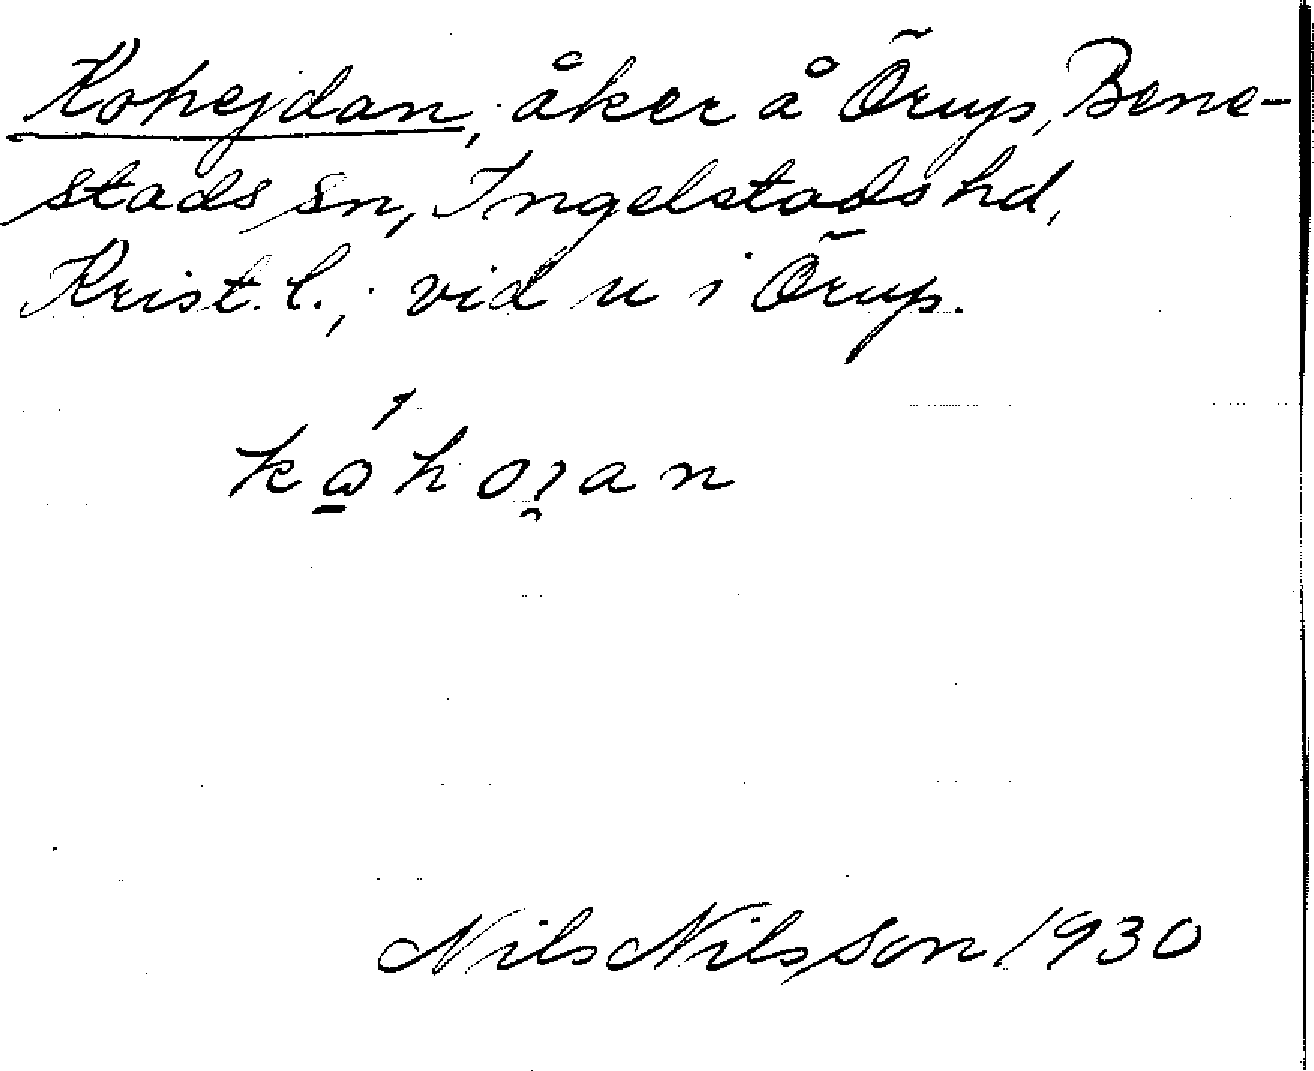 Kohejdan, åker å Örup, Bene-
stads sn, Ingelstads hd,
Krist. l.; vid u i Örup.
Nils Nilsson 1930